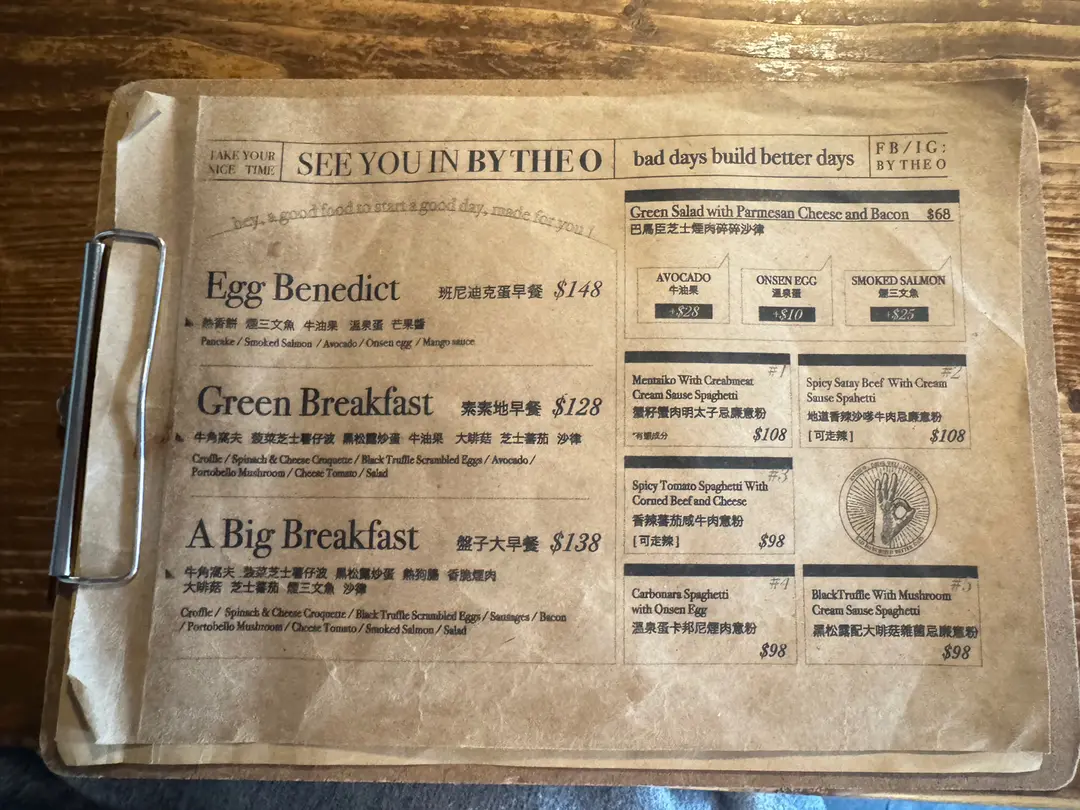 TAKE YOUR
NICE TIME
SEE YOU IN BY THE O
bad days build better days
FB/IG:
BY THE O
hey, a good food to start a good day, made for you !
Egg Benedict 班尼迪克蛋早餐 $148
熱香餅 煙三文魚 牛油果 溫泉蛋 芒果醬
Pancake / Smoked Salmon / Avocado / Onsen egg / Mango sauce
Green Breakfast 素素地早餐 $128
牛角窩夫 菠菜芝士薯仔波 黑松露炒蛋 牛油果 大啡菇 芝士蕃茄 沙律
Croffle / Spinach & Cheese Croquette / Black Truffle Scrambled Eggs / Avocado /
Portobello Mushroom / Cheese Tomato / Salad
A Big Breakfast 盤子大早餐 $138
牛角窩夫 菠菜芝士薯仔波 黑松露炒蛋 熱狗腸 香脆煙肉
大啡菇 芝士蕃茄 煙三文魚 沙律
Croffle / Spinach & Cheese Croquette / Black Truffle Scrambled Eggs / Sausages / Bacon
/ Portobello Mushroom / Cheese Tomato / Smoked Salmon / Salad
Green Salad with Parmesan Cheese and Bacon $68
巴馬臣芝士煙肉碎碎沙律
AVOCADO
牛油果
+$28
ONSEN EGG
溫泉蛋
+$10
SMOKED SALMON
煙三文魚
+$25
#1
Mentaiko With Creabmeat
Cream Sause Spaghetti
蟹籽蟹肉明太子忌廉意粉
$108
#2
Spicy Satay Beef With Cream
Sause Spahetti
地道香辣沙嗲牛肉忌廉意粉
[可走辣] $108
#3
Spicy Tomato Spaghetti With
Corned Beef and Cheese
香辣蕃茄咸牛肉意粉
[可走辣] $98
#4
Carbonara Spaghetti
with Onsen Egg
溫泉蛋卡邦尼煙肉意粉
$98
#5
BlackTruffle With Mushroom
Cream Sause Spaghetti
黑松露配大啡菇雜菌忌廉意粉
$98